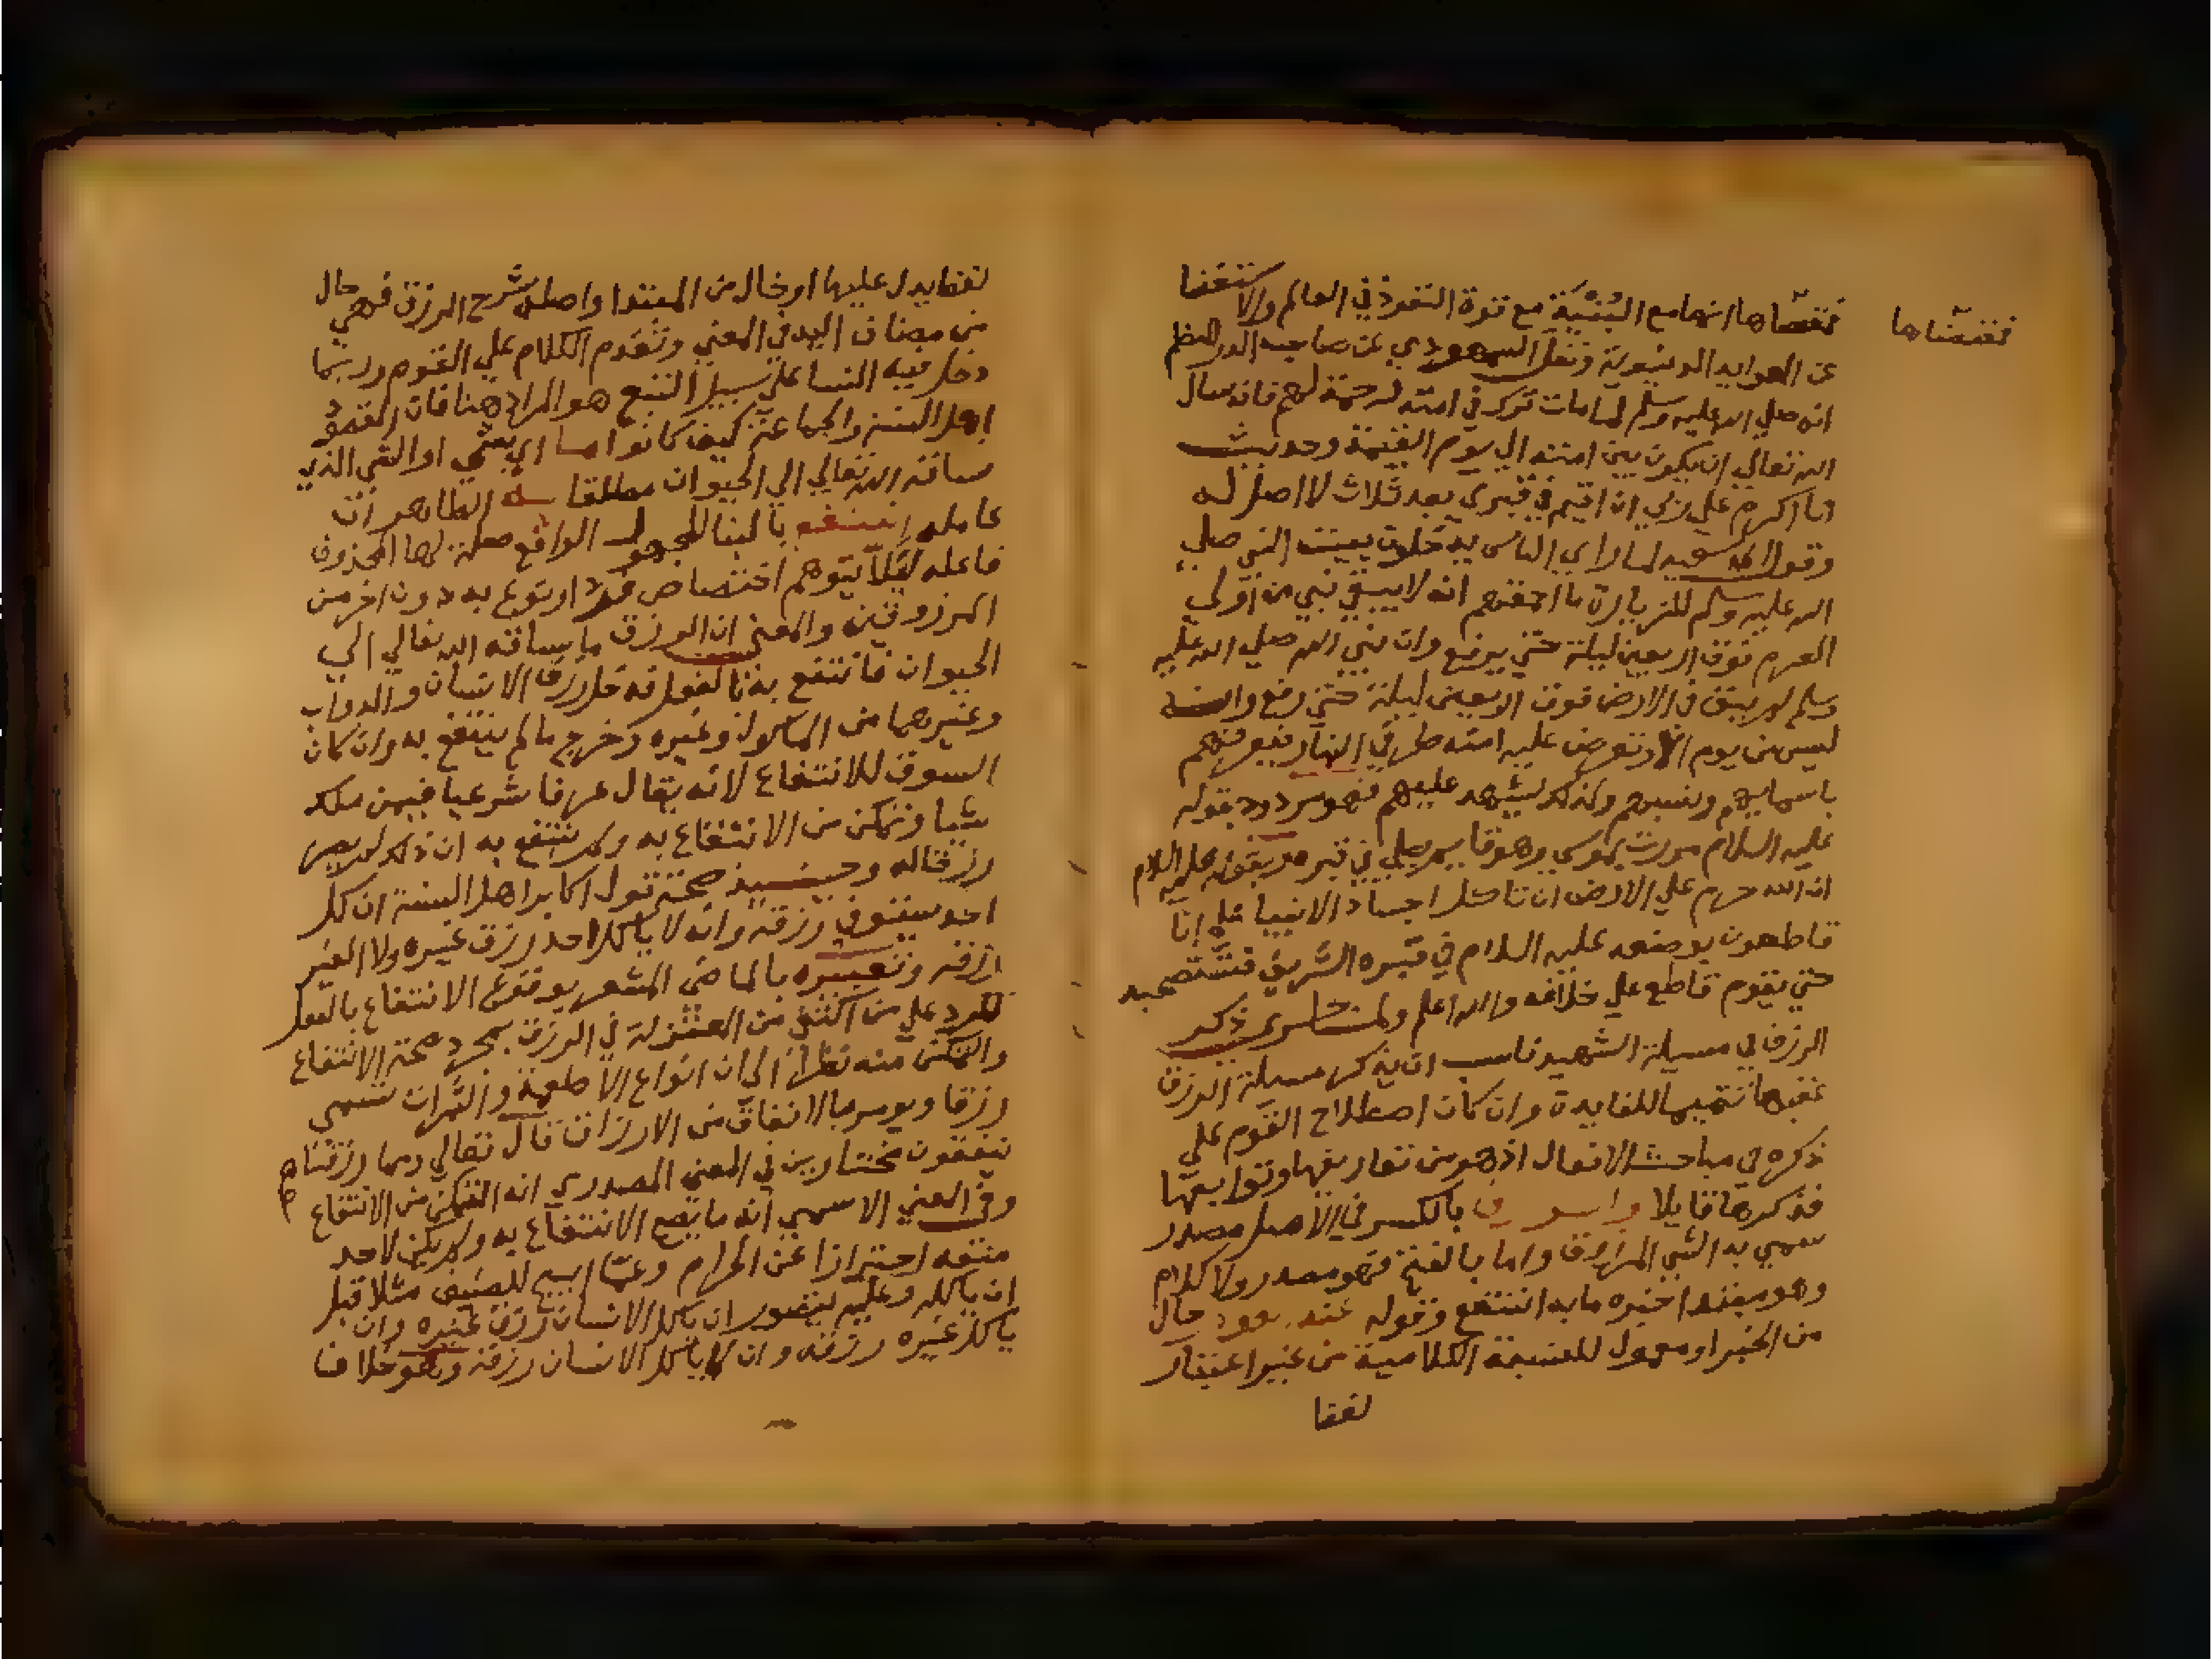 فقنصناها
فقصّاها انها مع البنية مع قوة النفوذ في العالم والاستغنا
عن العوايد الدنيوية ونقل السمهودي عن صاحب الدر النظم
انه صلي الله عليه وسلم لما مات ترك في امته لرحمة لهم فانه سال
الله تعالي ان يكون بين امته الي يوم القيمة وحديث
انا اكرم علي ربي ان اقيم في قبري بعد ثلاث لا اصل له
وقول ابي سعيد لما راي الناس يدخلون بيت النبي صلي
الله عليه وسلم للزيارة ما احمقهم انه لا يبقي نبي من اولي
العزم فوق اربعين ليلة حتي يرفع وان نبي الله صلي الله عليه
وسلم لم يبق في الارض فوق الاربعين ليلة حتي رفع وانه
ليس من يوم الا وتعرض عليه امته طرفي النهار فيعرفهم
باسمايهم ونسبهم ولذلك ليشهد عليهم فهو مردود بقوله
عليه السلام مررت بموسي وهو قايم يصلي في قبره وبقوله عليه السلام
ان الله حرم علي الارض ان تاكل اجساد الانبيا علي انا
قاطعون بوضعه عليه السلام في قبره الشريف فنستصحبه
حتي يقوم قاطع علي خلافه والله اعلم ولما جري ذكر
الرزق في مسيلة الشهيد ناسب ان يذكر مسيلة الرزق
عقبها تتميما للفايدة وان كان اصطلاح القوم علي
ذكره في مباحث الافعال اذ هو من تعاريفها وتوابعها
فذكرها قايلا والرزق بالكسر في الاصل مصدر
سمي به الشي المرزوق واما بالفتح فهو مصدر ولا كلام
وهو مبتدا خبره ما به انتفع وقوله عند حال
من الخبر او معمول للنسبة الكلامية من غير اعتبار
لفظا
لفظا يدل عليها او حال من المبتدا واصله شرح الرزق فهي حال
من مضاف اليه في المعني وتقدم الكلام علي القوم وربما
دخل فيه النسا علي سبيل التبع هو المراد هنا فان المقصود
اهل السنة والجماعة كيف كانوا ما اي شي او الشي الذي
ساقه الله تعالي الي الحيوان مطلقا به الظاهر ان
عامله انتفع بالبنا للمجهول الواقع صلة لها المحذوف
فاعله ليلا يتوهم اختصاص فرد او نوع به دون اخر من
المرزوقين والمعني ان الرزق ما ساقه الله تعالي الي
الحيوان فانتفع به بالفعل فدخل رزق الانسان والدواب
وغيرهما من الماكول وغيره وخرج ما لم ينتفع به وان كان
السوق للانتفاع لانه يقال عرفا شرعيا فيمن ملك
شيا وتمكن من الانتفاع به ولم ينتفع به ان ذلك لم يصر
رزقا له وحينيذ صحة قول اكابر اهل السنة ان كل
احد يستوفي رزقه وانه لا ياكل احد رزق غيره ولا الغير
رزقه وتعبيره بالماضي المشعر بوقوع الانتفاع بالفعل
للرد علي من اكتفي من المعتزلة في الرزق بمجرد صحة الانتفاع
والتمكن منه نظرا الي ان انواع الاطعمة والثمرات تسمي
رزقا ويومر بالانفاق من الارزاق قال تعالي ومما رزقناهم
ينفقون مختارين في المعني المصدري انه التمكن من الانتفاع
وفي المعني الاسمي انه ما يصح الانتفاع به ولم يكن لاحد
منعه احترازا عن الحرام وعما ابيح للضيف مثلا قبل
ان ياكله وعليه يتصور ان ياكل الانسان رزق غيره وان
ياكل غيره رزقه وان لا ياكل الانسان رزقه وهو خلاف